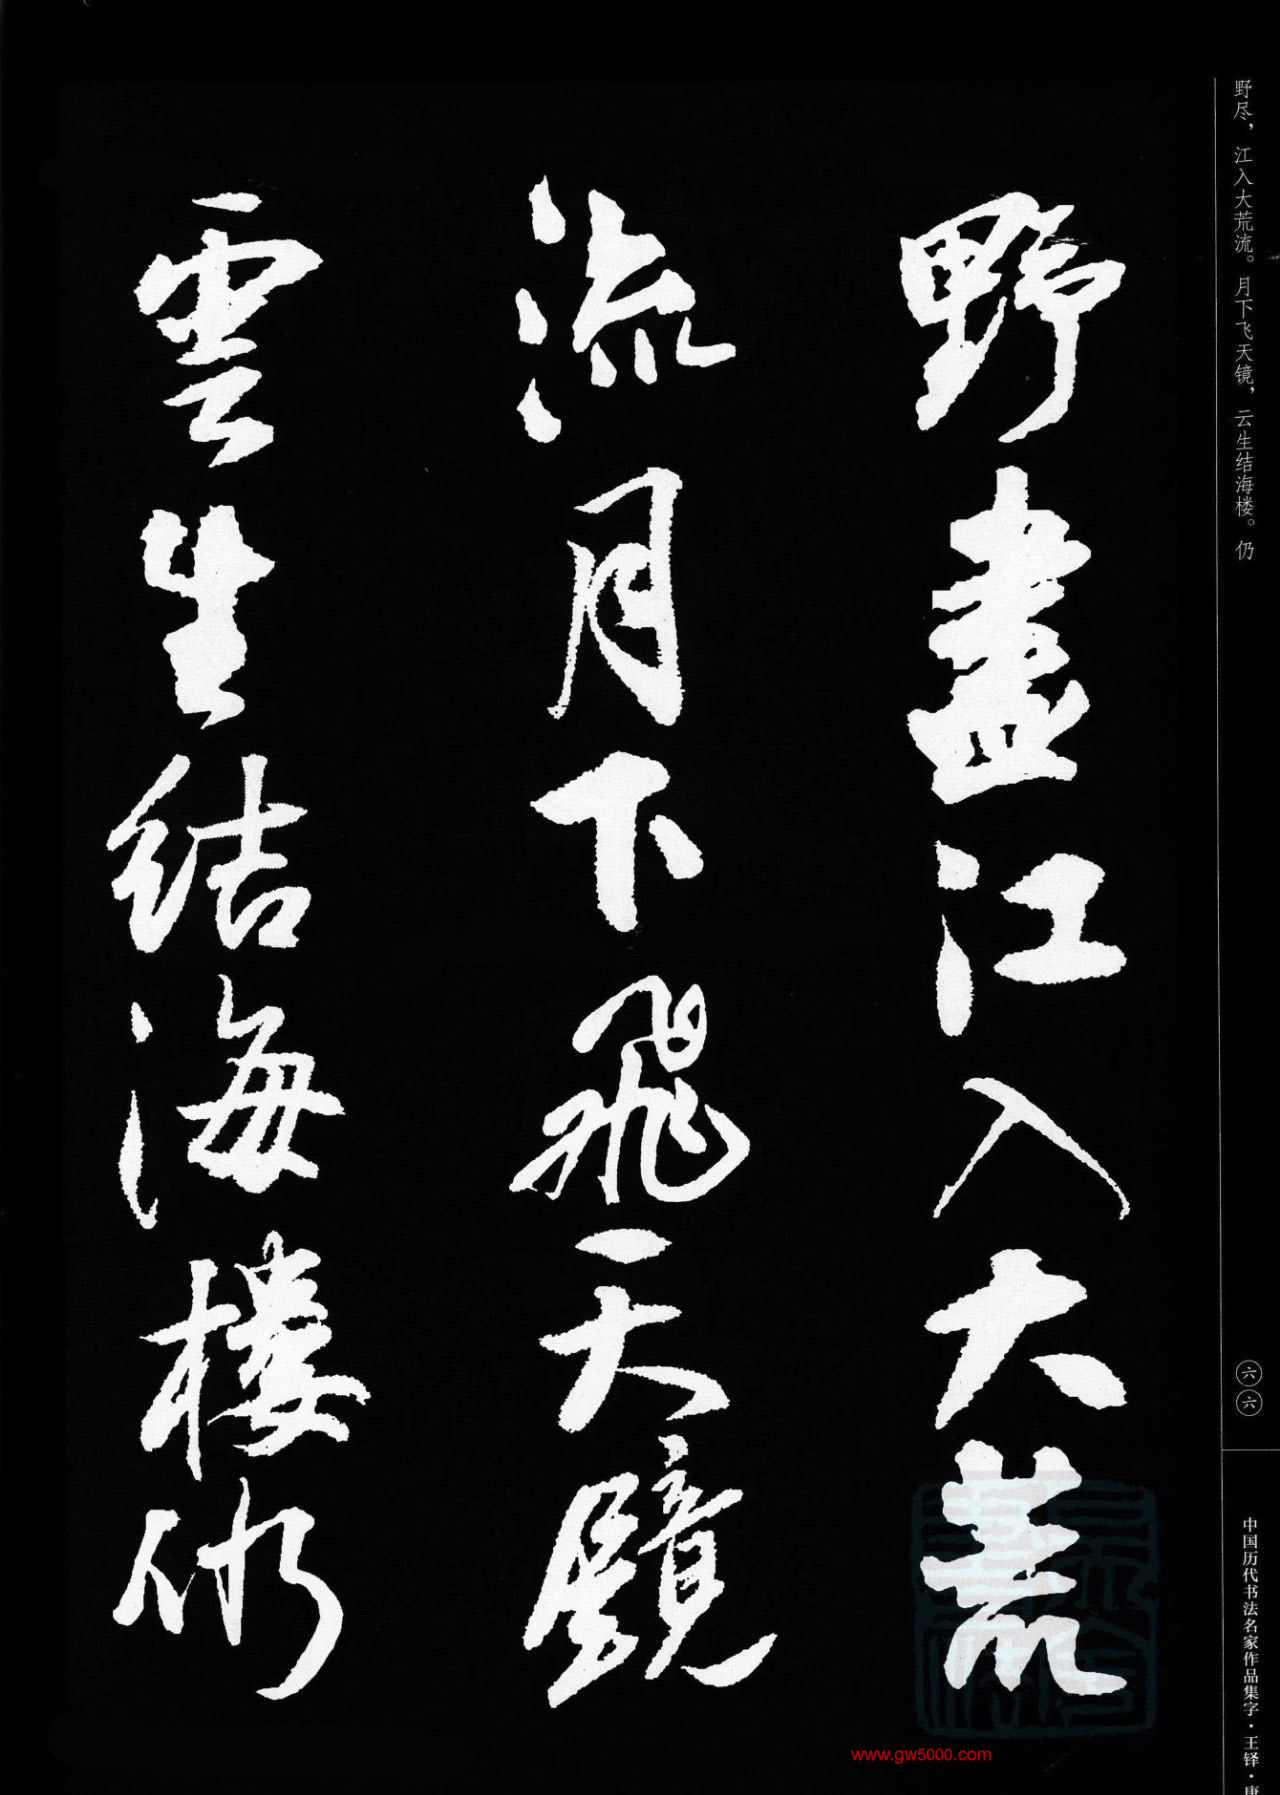 野尽，江入大荒流。月下飞天镜，云生结海楼。仍
野盡江入大荒
流月下飛天鏡
雲生结海楼仍
六六
中国历代书法名家作品集字·王铎·唐
www.gw5000.com